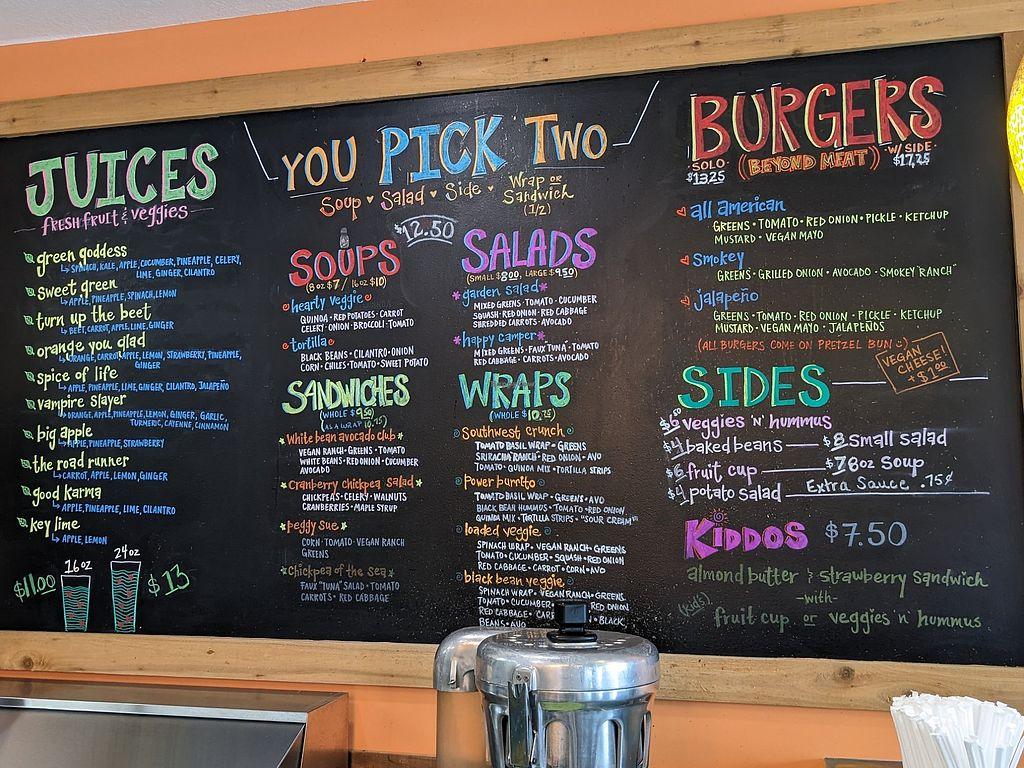 JUICES
FRESH FRUIT & veggies
green goddess
SPINACH, KALE, APPLE, CUCUMBER, PINEAPPLE, CELERY,
LIME, GINGER, CILANTRO
sweet green
APPLE, PINEAPPLE, SPINACH, LEMON
turn up the beet
BEET, CARROT, APPLE, LIME, GINGER
orange you glad
ORANGE, CARROT, APPLE, LEMON, STRAWBERRY, PINEAPPLE,
GINGER
spice of life
APPLE, PINEAPPLE, LIME, GINGER, CILANTRO, JALAPEÑO
vampire slayer
ORANGE, APPLE, PINEAPPLE, LEMON, GINGER, GARLIC,
TURMERIC, CAYENNE, CINNAMON
big apple
APPLE, PINEAPPLE, STRAWBERRY
the road runner
CARROT, APPLE, LEMON, GINGER
good karma
APPLE, PINEAPPLE, LIME, CILANTRO
key lime
APPLE, LEMON
16oz
24oz
$11.00
$13
YOU PICK TWO
Soup ♥ Salad ♥ Side ♥ Wrap or
Sandwich
(1/2)
$12.50
SOUPS
(8 oz $7 / 16 oz $10)
hearty veggie
QUINOA • RED POTATOES • CARROT
CELERY • ONION • BROCCOLI • TOMATO
tortilla
BLACK BEANS • CILANTRO • ONION
CORN • CHILES • TOMATO • SWEET POTATO
SANDWICHES
(WHOLE $9.50)
(AS A WRAP 10.75)
White bean avocado club
VEGAN RANCH • GREENS • TOMATO
WHITE BEANS • RED ONION • CUCUMBER
AVOCADO
Cranberry chickpea salad
CHICKPEAS • CELERY • WALNUTS
CRANBERRIES • MAPLE SYRUP
peggy sue
CORN • TOMATO • VEGAN RANCH
GREENS
Chickpea of the sea
FAUX "TUNA" SALAD • TOMATO
CARROTS • RED CABBAGE
SALADS
(SMALL $8.00, LARGE $9.50)
garden salad
MIXED GREENS • TOMATO • CUCUMBER
SQUASH • RED ONION • RED CABBAGE
SHREDDED CARROTS • AVOCADO
happy camper
MIXED GREENS • FAUX "TUNA" • TOMATO
RED CABBAGE • CARROTS • AVOCADO
WRAPS
(WHOLE $10.75)
Southwest crunch
TOMATO BASIL WRAP • GREENS
SRIRACHA RANCH • RED ONION • AVO
TOMATO • QUINOA MIX • TORTILLA STRIPS
Power burrito
TOMATO BASIL WRAP • GREENS • AVO
BLACK BEAN HUMMUS • TOMATO • RED ONION
QUINOA MIX • TORTILLA STRIPS • "SOUR CREAM"
loaded veggie
SPINACH WRAP • VEGAN RANCH • GREENS
TOMATO • CUCUMBER • SQUASH • RED ONION
RED CABBAGE • CARROT • CORN • AVO
black bean veggie
SPINACH WRAP • VEGAN RANCH • GREENS
TOMATO • CUCUMBER RED ONION
RED CABBAGE • BLACK
BEANS • AVO
BURGERS
SOLO $13.25 (BEYOND MEAT) W/ SIDE $17.25
all american
GREENS • TOMATO • RED ONION • PICKLE • KETCHUP
MUSTARD • VEGAN MAYO
smokey
GREENS • GRILLED ONION • AVOCADO • SMOKEY "RANCH"
jalapeño
GREENS • TOMATO • RED ONION • PICKLE • KETCHUP
MUSTARD • VEGAN MAYO • JALAPEÑOS
(ALL BURGERS COME ON PRETZEL BUN :)
VEGAN
CHEESE!
+ $1.00
SIDES
$6.50 veggies 'n' hummus
$4 baked beans $8 small salad
$6 fruit cup $7 8oz Soup
$4 potato salad Extra Sauce .75¢
KIDDOS $7.50
almond butter & strawberry sandwich
-with-
(kids) fruit cup or veggies n' hummus